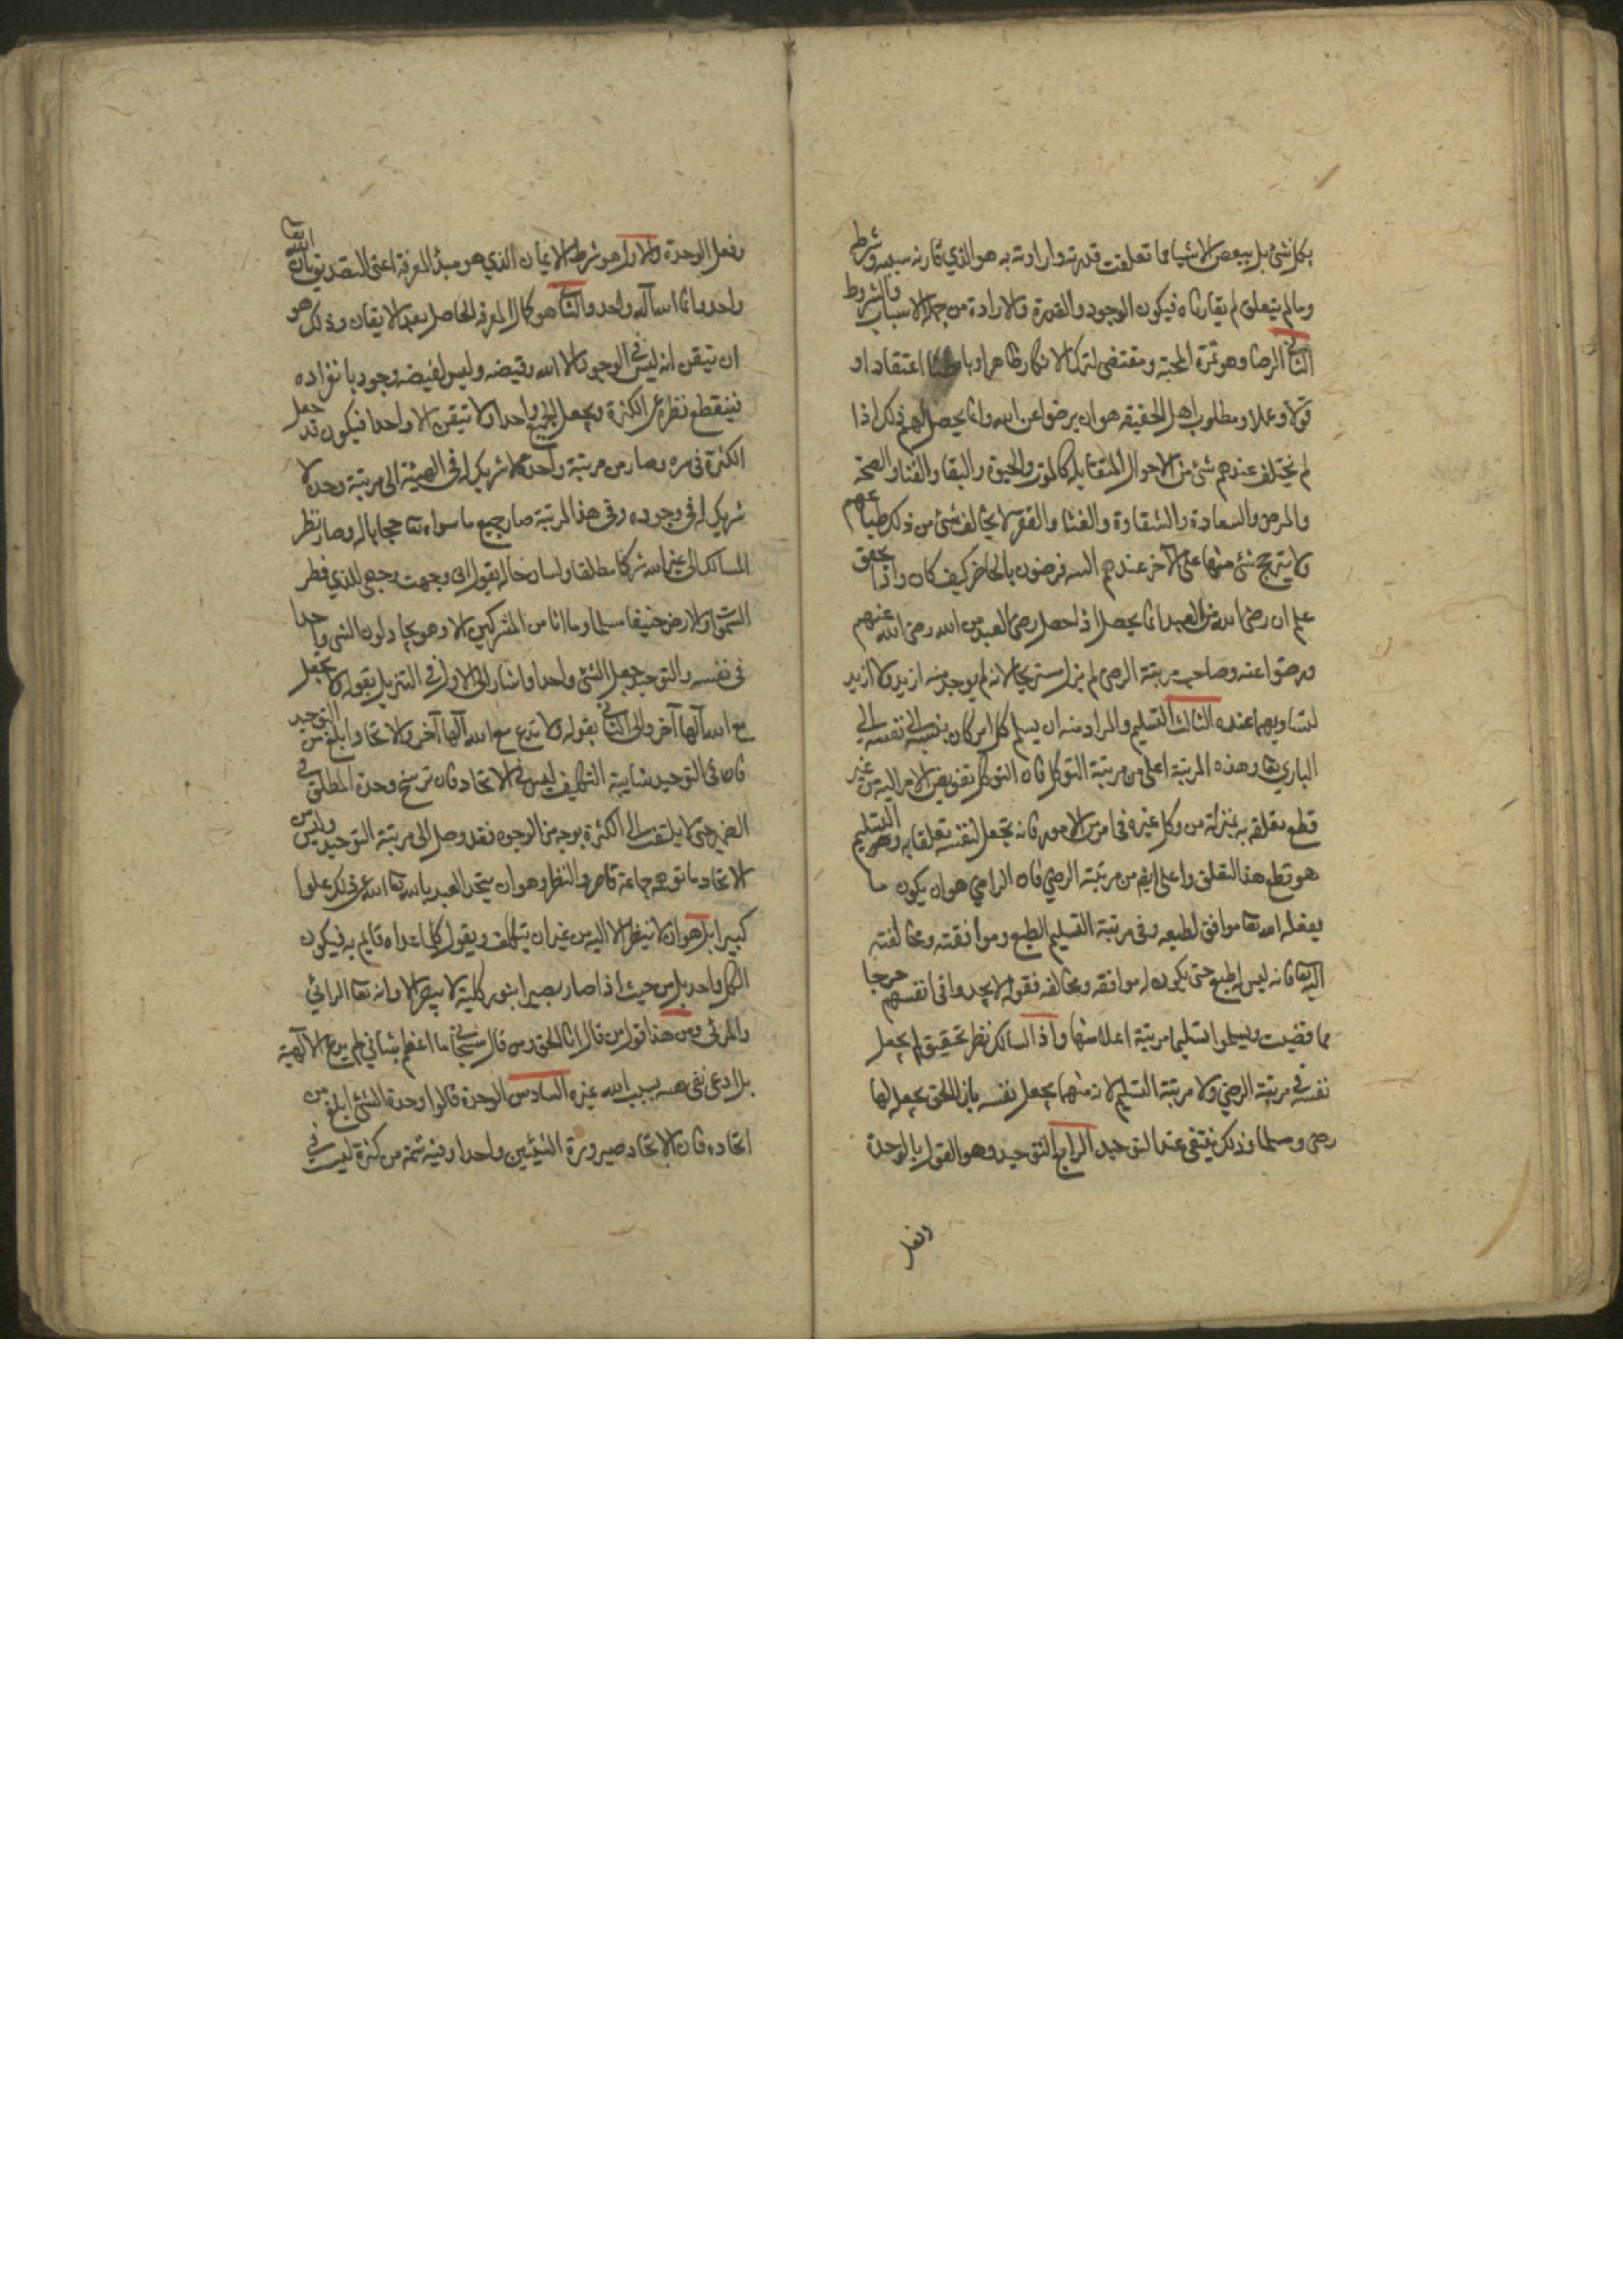 بكل شئ بل ببعض الاشيا فما تعلقت قدرته وارادته به هو الذي قارنه سببه وشرطه
وما لم يتعلق لم يقارناه فيكون الوجود والقدرة والارادة من جملة الاسباب والشروط
الثاني الرضا وهو ثمرة المحبة ومقتضى لترك الانكار ظاهرا وباطنا اعتقادا او
قولا وعملا ومطلوب اهل الحقيقه هو ان يرضوا عن الله وانما يحصل لهم ذلك اذا
لم يختلف عندهم شئ من الاحوال المتقابله كالموت والحيوة والبقا والفنا والصحة
والمرض والسعادة والشقاوة والغنا والفقر لا يخالف شئ من ذلك طباعهم
ولا يترجح شئ منها على الآخر عندهم فرضون بالحاضر كيف كان واذا تحقق
علم ان رضى الله من العبد انما يحصل اذا حصل رضى العبد من الله رضى الله عنهم
ورضوا عنه وصاحب مرتبة الرضى لم يزل مستريحا لانه لم يوجد منه اريد ولا اريد
لتساويهما عنده الثالث التسليم والمراد منه ان يسلم كل امر كان بنسبه الى نفسه الى
الباري تعا وهذه المرتبة اعلى من مرتبة التوكل فان التوكل تفويض الامر اليه من غير
قطع تعلقه به بمنزلة من وكل غيره في امر من الامور فانه يجعل لنفسه تعلقا به والتسليم
هو قطع هذا التعلق واعلى ايضا من مرتبة الرضى فان الراضي هو ان يكون ما
يفعله الله تعا موافق لطبعه وفى مرتبة التسليم الطبع وموافقته ومخالفته
اليه تعا فانه ليس له طبع حتى يكون له موافقه ومخالفه فقوله لا يجدوا فى انفسهم حرجا
مما قضيت ويسلموا تسليما مرتبة اعلا منها واذا السالك نظر تحقيق لم يجعل
نفسه في مرتبة الرضي ولا مرتبة التسليم لانه منهما يجعل نفسه بازا الحق يجعل لها
رضى وسلما وذلك ينتفى عند التوحيد الرابع التوحيد وهو القول بالوحدة
وفعل
وفعل الوحدة والاول هو شرط الايمان الذي هو مبدأ المعرفة اعنى التصديق بان الله تعا
واحد وانما الله اله واحد والثاني هو كمال المعرفه الحاصل بعد الايقان وذلك هو
ان تيقن انه ليس في الوجود الا الله وفيضه وليس لفيضه وجود بانفراده
فينقطع نظره عن الكثرة ويجعل الجميع واحدا ولا تيقن الا واحدا فيكون قد جعل
الكثرة فى سره وصار من مرتبة وحده لا شريك له فى الهيئة الى مرتبة وحده لا
شريك له فى وجوده وفى هذا المرتبة صار جميع ما سواه تعا حجابا له وصار نظر
السالك الى غير الله شركا مطلقا ولسان حاله يقول انى وجهت وجهى للذي فطر
السموات والارض حنيفا مسلما وما انا من المشركين الا وهو يجادلون الشى واحدا
فى نفسه والتوحيد جعل الشئ واحدا واشار الى الاول في التنزيل بقوله لا تجعل
مع الله الها آخر والى الثاني بقوله لا تدع مع الله الها آخر والاتحاد ابلغ من التوحيد
فان فى التوحيد شايبة التكليف ليس في الاتحاد فان ترسخ وحدة المطلق في
الضمير حتى لا يلتفت الى الكثرة بوجه من الوجوه فقد وصل الى مرتبة التوحيد وليس
الاتحاد ما توهمه جماعة قاصروا النظر وهو ان يتحد العبد بالله تعا الله عن ذلك علوا
كبيرا بل هو ان لا ينظر الا اليه من غير ان يتكلف ويقول كل ما عداه قايم به فيكون
الكل واحد بل من حيث اذا صار بصيرا بنور كلية لا يبصر الا وانه تعا الرائي
والمرئي ومن هذا قول من قال انا الحق ومن قال سبحاني ما اعظم شاني لم يدع الالهية
بل ادعى نفى نفسه بسبب الله غيره السادس الوحدة قالوا وحدة الشئ ابلغ من
اتحاده فان الاتحاد صيرورة الشيئين واحدا وفيه شمة من كثرة ليست في